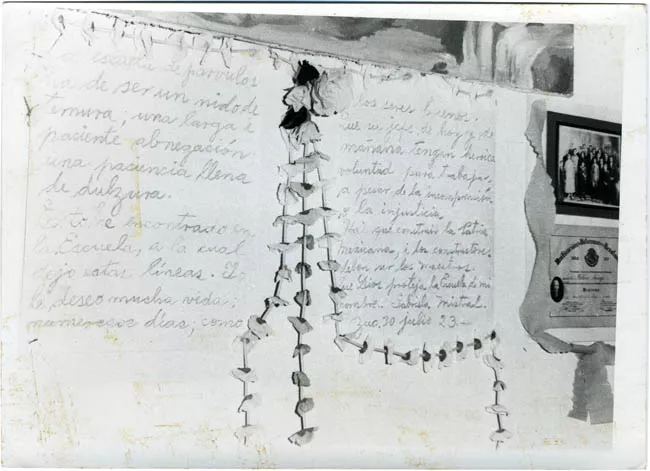 La escuela de párvulos
ha de ser un nido de
ternura, una larga e
paciente abnegación;
una paciencia llena
de dulzura.
Esto he encontrado en
la Escuela, a la cual
dejo estas líneas. Yo
le deseo mucha vida;
numerosos días, como
los seres buenos.
Que su jefe, de hoy y de
mañana tengan heroica
voluntad para trabajar,
a pesar de la incomprensión
o la injusticia.
Hai que construir la Patria
mexicana, i los constructores
deben ser los maestros.
Que Dios proteja la Escuela de mi
nombre. Gabriela Mistral.
Zac, 30 julio 23.—